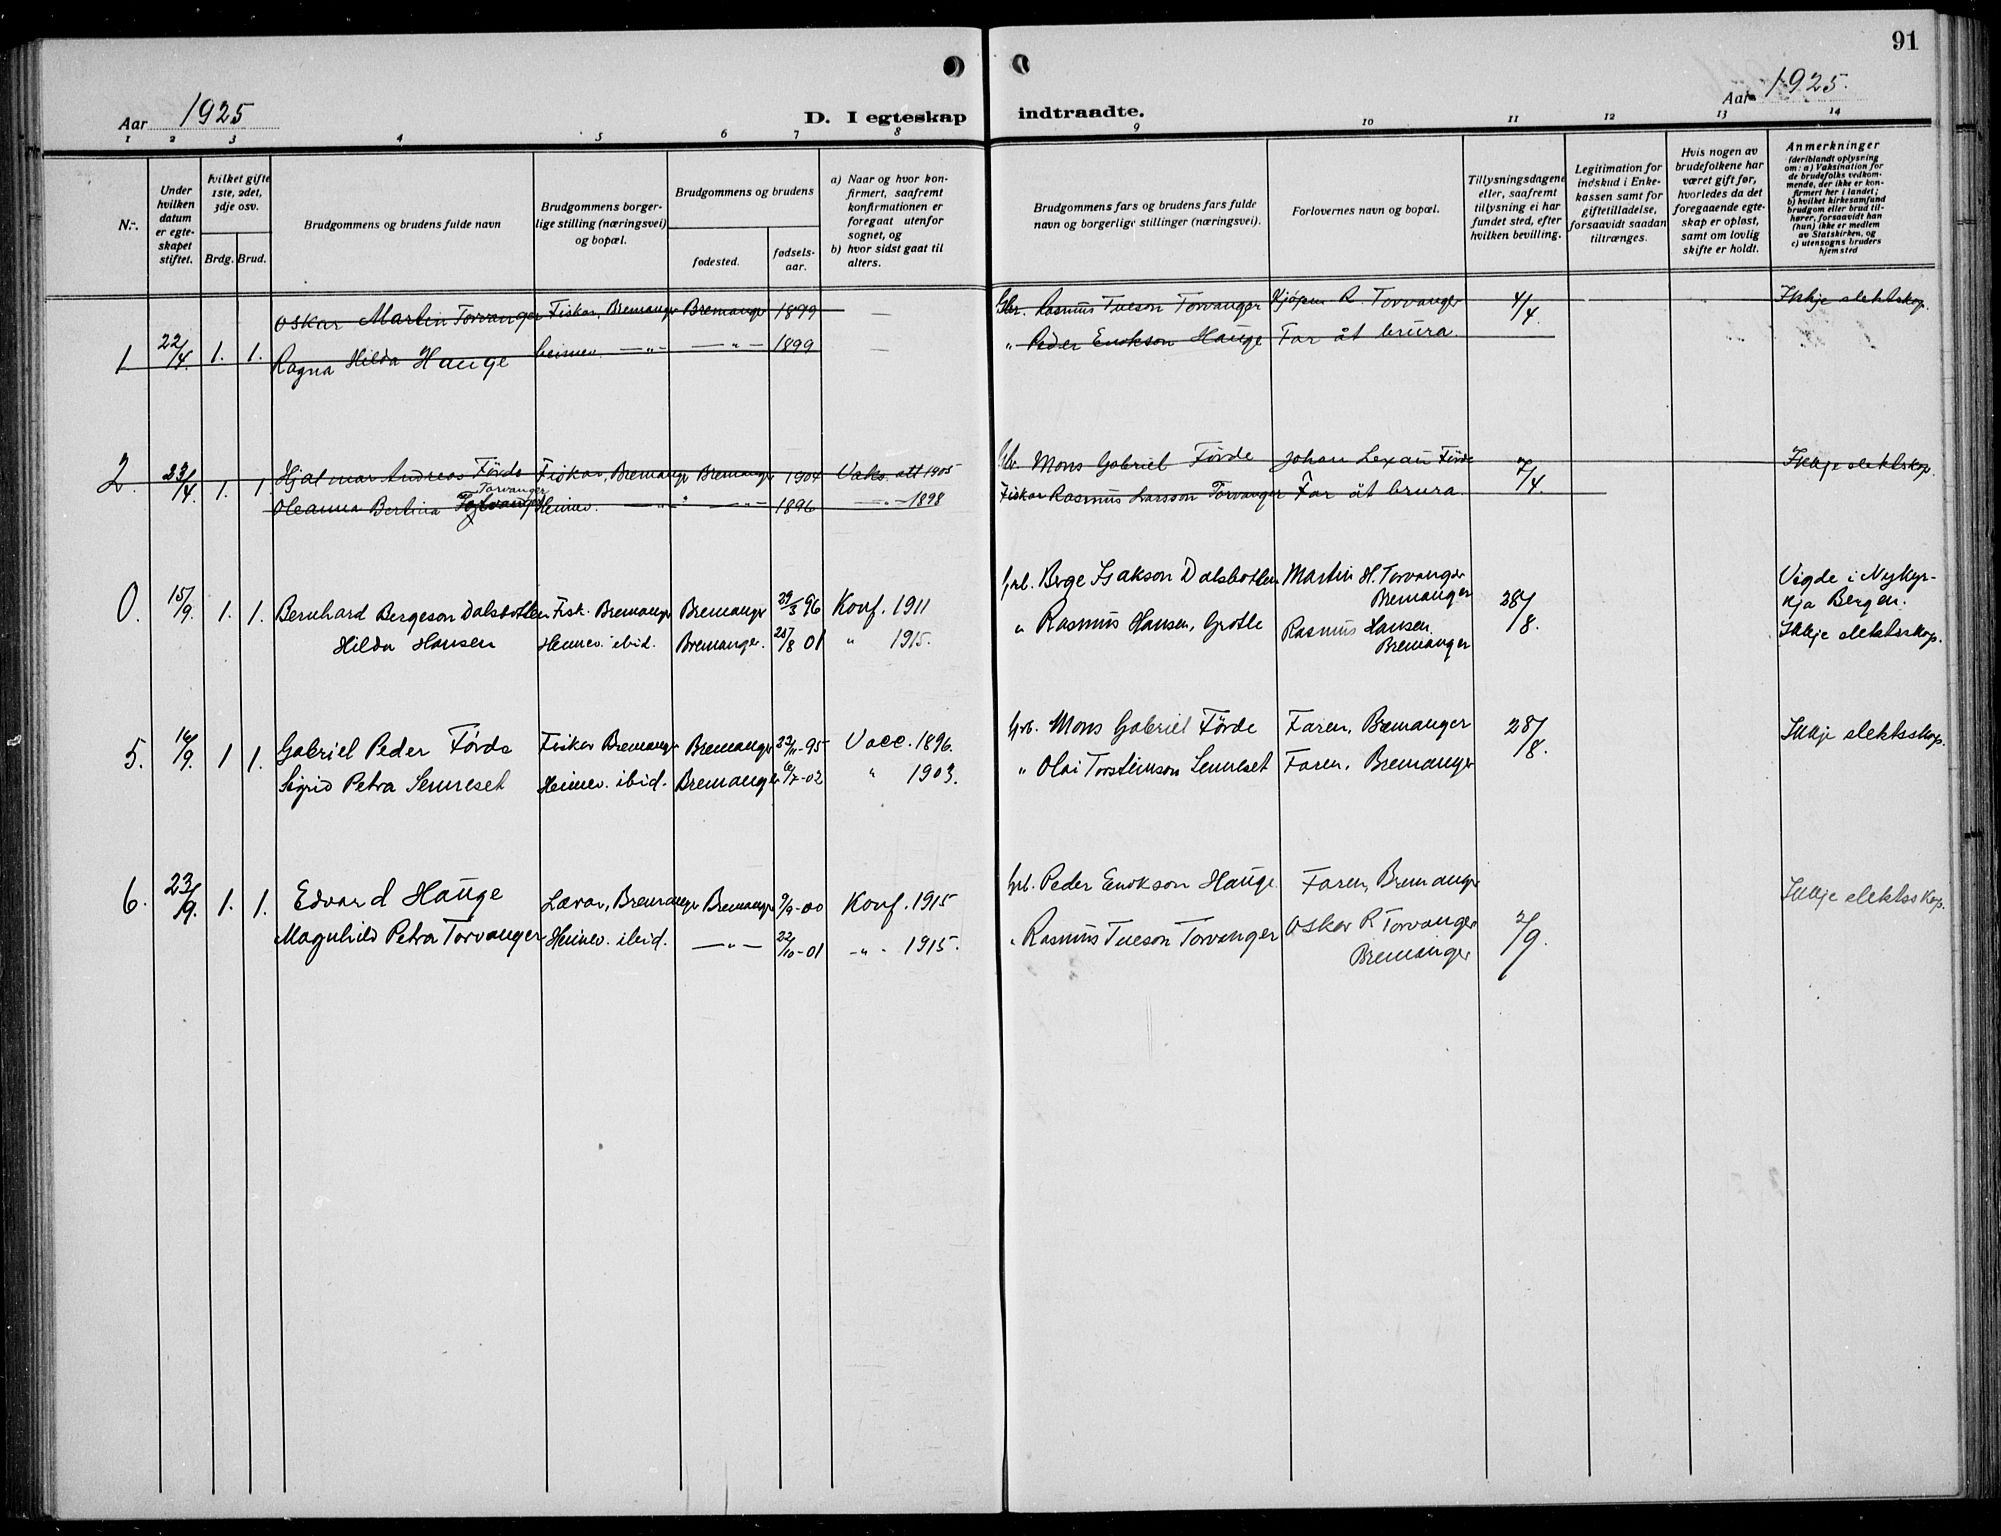 91
Aar 1925
D. I egteskap
indtraadte.
Aar 1925.
1 2 3 4 5 6 7 8
9 10 11 12 13 14
Nr.
Under hvilken datum er egteskapet stiftet.
hvilket gifte 1ste, 2det, 3dje osv.
Brdg. Brud.
Brudgommens og brudens fulde navn
Brudgommens borgerlige stilling (næringsvei) og bopæl.
Brudgommens og brudens
fødested.
fødselsaar.
a) Naar og hvor konfirmert, saafremt konfirmationen er foregaat utenfor sognet, og
b) hvor sidst gaat til alters.
Brudgommens fars og brudens fars fulde navn og borgerlige stillinger (næringsvei).
Forlovernes navn og bopæl.
Tillysningsdagene eller, saafremt tillysning ei har fundet sted, efter hvilken bevilling.
Legitimation for indskud i Enkekassen samt for giftetilladelse, forsaavidt saadan tiltrænges.
Hvis nogen av brudefolkene har været gift før, hvorledes da det foregaaende egteskap er opløst, samt om lovlig skifte er holdt.
Anmerkninger
(deriblandt oplysning om: a) Vaksination for de brudefolks vedkommende, der ikke er konfirmert her i landet; b) hvilket kirkesamfund brudgom eller brud tilhører, forsaavidt han (hun) ikke er medlem av Statskirken, og c) utensogns bruders hjemsted
1 22/4. 1. 1. Oskar Martin Torvanger Fiskar, Bremanger Bremanger 1899 — Gbr. Rasmus Tueson Torvanger R. Torvanger 4/4. Ikkje slektskap.
Ragna Hilda Hauge heimev. —"— —"— 1899 — " Peder Enokson Hauge Far åt brura
2. 23/4. 1. 1. Hjalmar Andreas Förde Fiskar, Bremanger Bremanger 1904 Vaks. att 1905 Mons Gabriel Förde Johan Förde 7/4. Ikkje slektskap.
Torvanger
Oleanna Bertina Heimev. —"— —"— 1896 —"— 1898 Fiskar Rasmus Larsson Torvanger Far åt brura.
0. 15/9. 1. 1. Bernhard Bergeson Dalsbotten Fisk. Bremanger Bremanger 29/3 96 Konf. 1911 Grb. Berge Isakson Dalsbotten Martin H. Torvanger Bremanger 28/8. Vigde i Nykyrkja Bergen.
Hilda Hansen Heimev. ibid. Bremanger. 25/8 01 " 1915. " Rasmus Hansen, Grotle Rasmus Hansen Bremanger Ikkje slektsskap.
5. 16/9. 1 1. Gabriel Peder Förde Fiskar Bremanger Bremanger 22/11-95 Vacc. 1896. Grb. Mons Gabriel Förde Faren, Bremanger 28/8. Ikkje slektsskap.
Sigrid Petra Senneset Heimev. ibid. Bremanger 6/7-02 " 1903. " Olai Torsteinson Senneset Faren, Bremanger
6. 23/9. 1. 1. Edvard Hauge Lærar, Bremanger Bremanger 9/9-00 Konf. 1915 Grb. Peder Enokson Hauge Faren, Bremanger 2/9. Ikkje slektsskap.
Magnhild Petra Torvanger Heimev. ibid. —"— 22/10-01 -"- 1915. " Rasmus Tueson Torvanger Oskar R Torvanger Bremanger